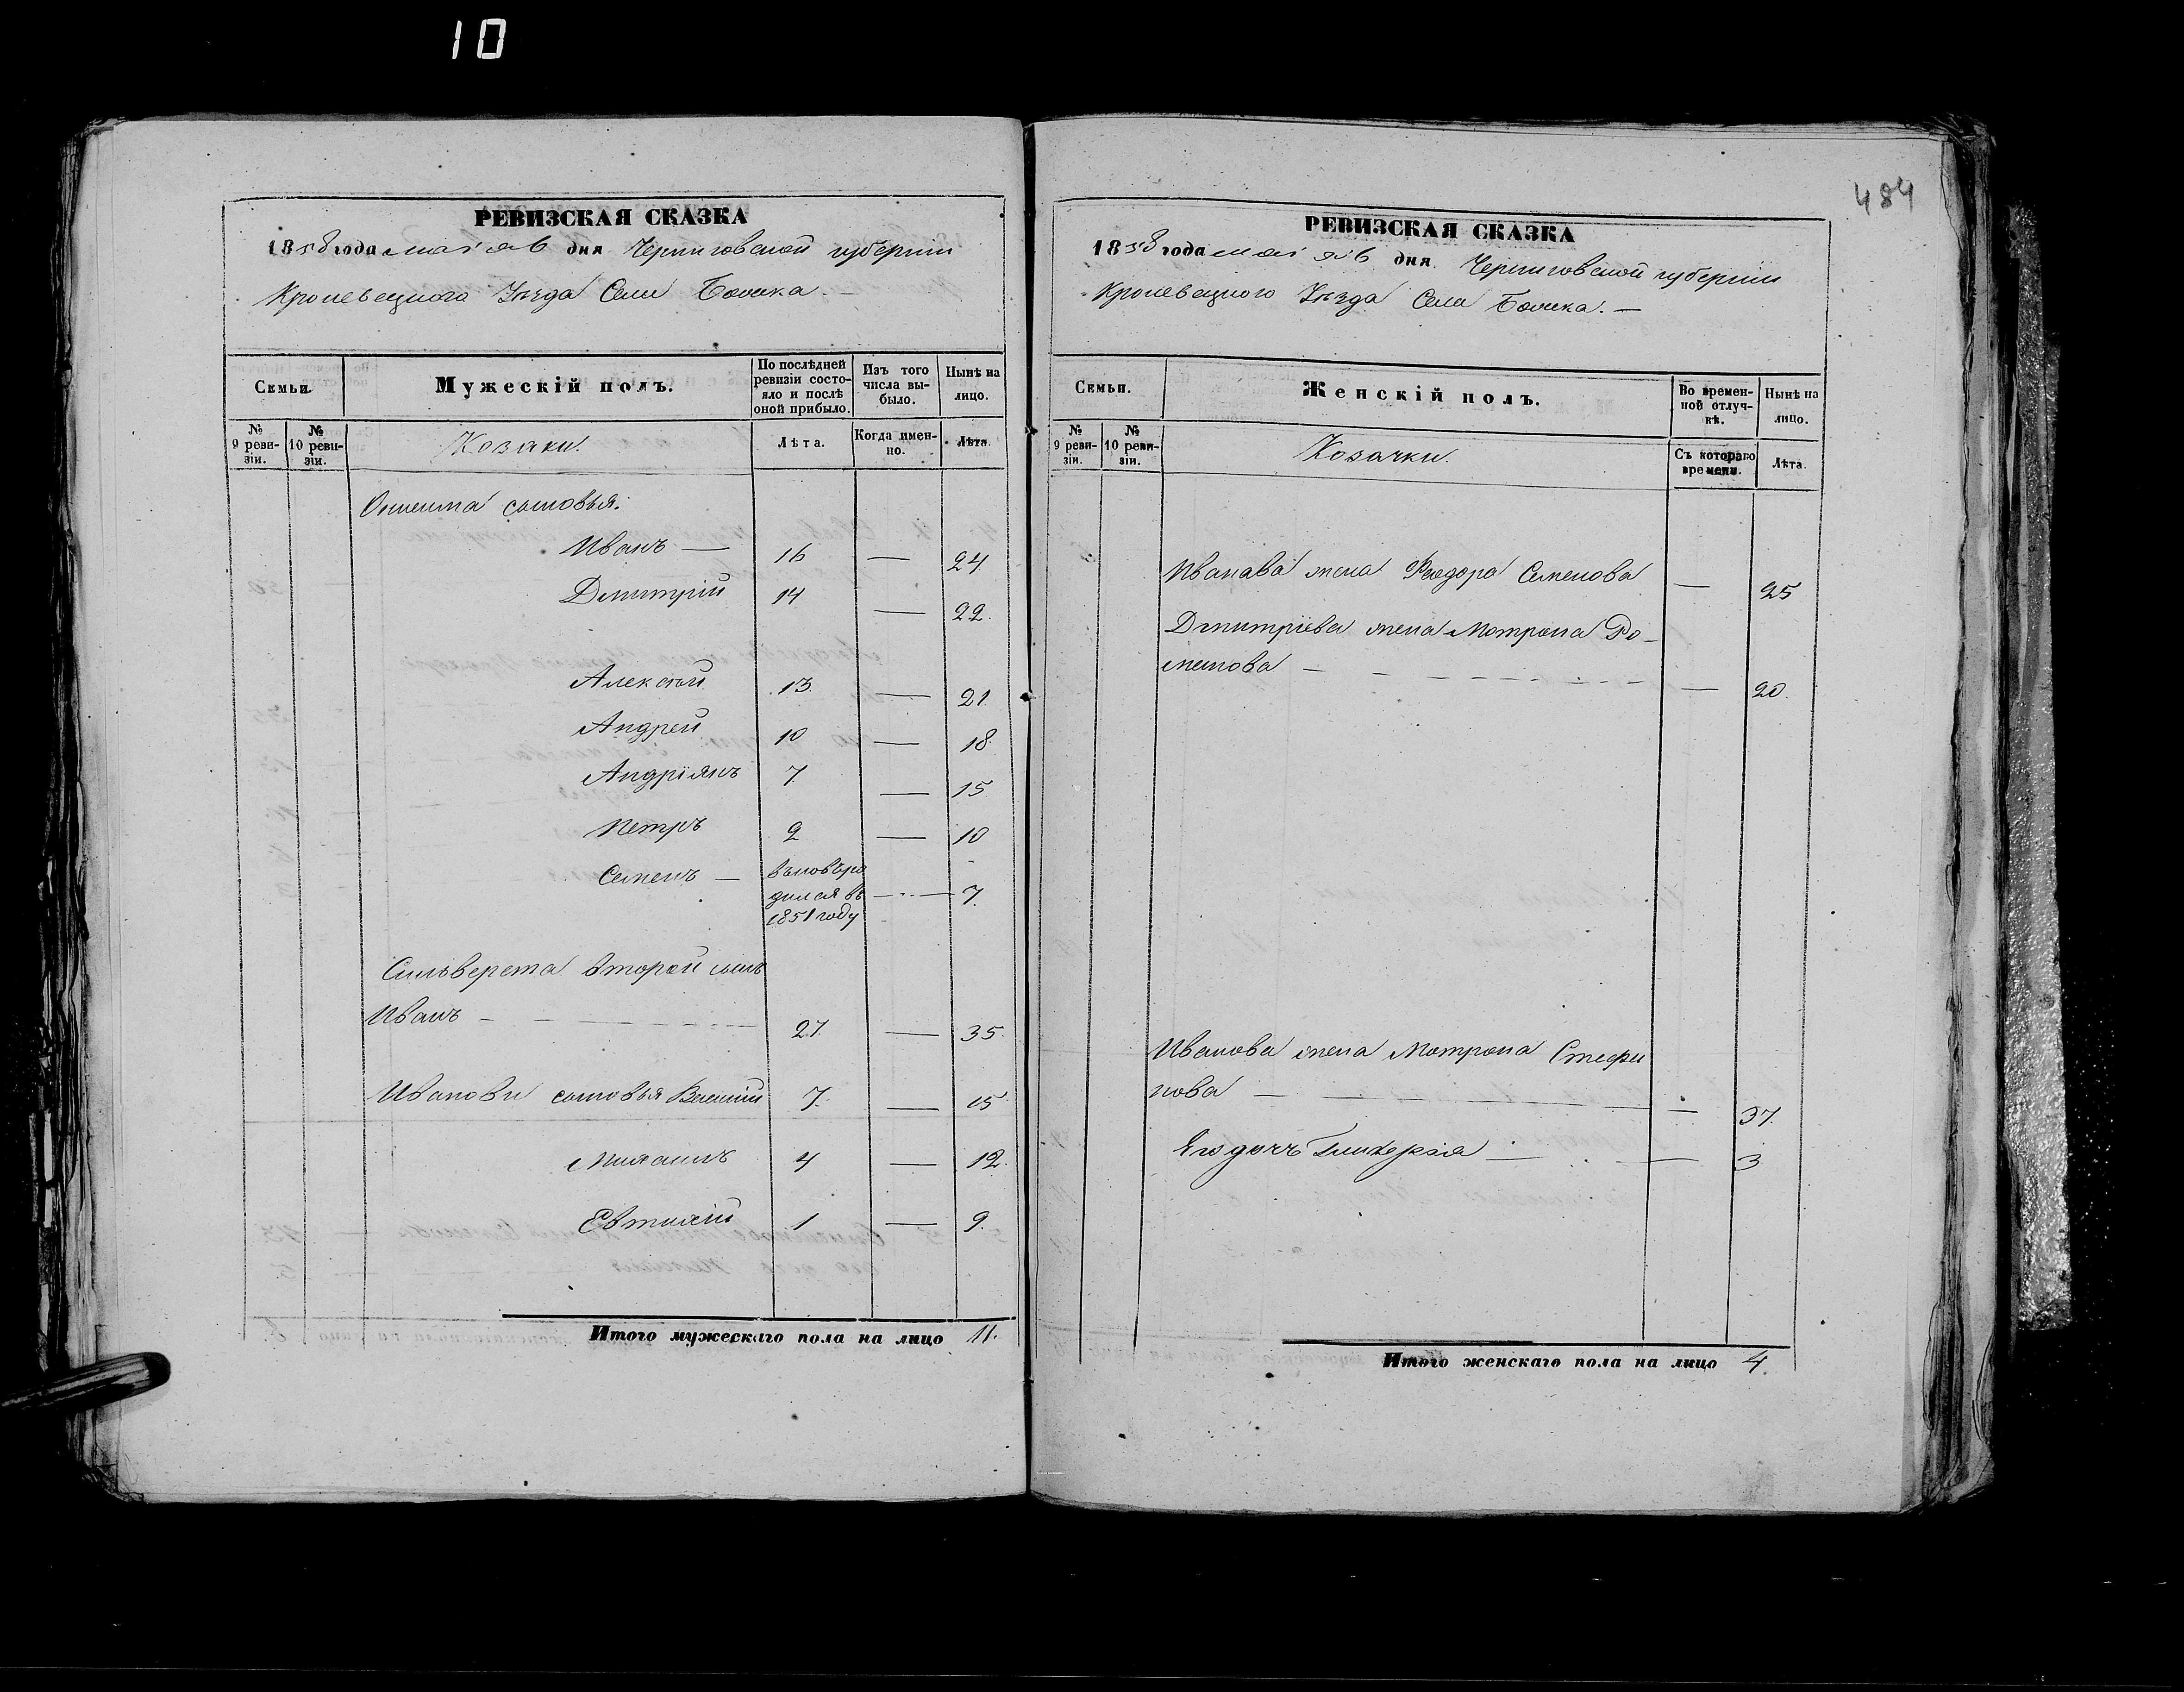 10
484
РЕВИЗСКАЯ СКАЗКА
1858 года мая дня Черниговской губернии
Кролевецкого Уѣзда Села
Семьи.
Мужескій полъ.
По послѣдней ревизіи состояло и послѣ оной прибыло.
Изъ того числа выбыло.
Нынѣ на лицо.
№ 9 ревизіи.
№ 10 ревизіи.
Козаки.
Лѣта.
Когда именно.
Лѣта.
сыновья:
Иванъ — 16 — 24
Дмитрій 14 — 22.
Алексѣй 13. — 21
Андрей 10 — 18
Андріянъ 7 — 15
Петръ 2 — 10
Семенъ — вновьро
дился въ — 7.
1851 году
Сильверста второй сынъ
Иванъ — 27. — 35.
Ивановы сыновья Василій 7. — 15
Михаилъ 4 — 12.
Евтихій 1 — 9.
Итого мужескаго пола на лицо 11.
РЕВИЗСКАЯ СКАЗКА
1858 года мая дня Черниговской губерніи
Кролевецкого Уѣзда Села
Семьи.
Женскій полъ.
Во временной отлучкѣ.
Нынѣ на лицо.
№ 9 ревизіи.
№ 10 ревизіи.
Козачки.
Съ котораго времени.
Лѣта.
Иванова жена Феодора Семенова — 25
Дмитріева жена Мотрона Ро-
менова — — 20.
Иванова жена Мотрона Стефа
нова — — 37.
Его дочь Гликерія — — 3
Итого женскаго пола на лицо 4.